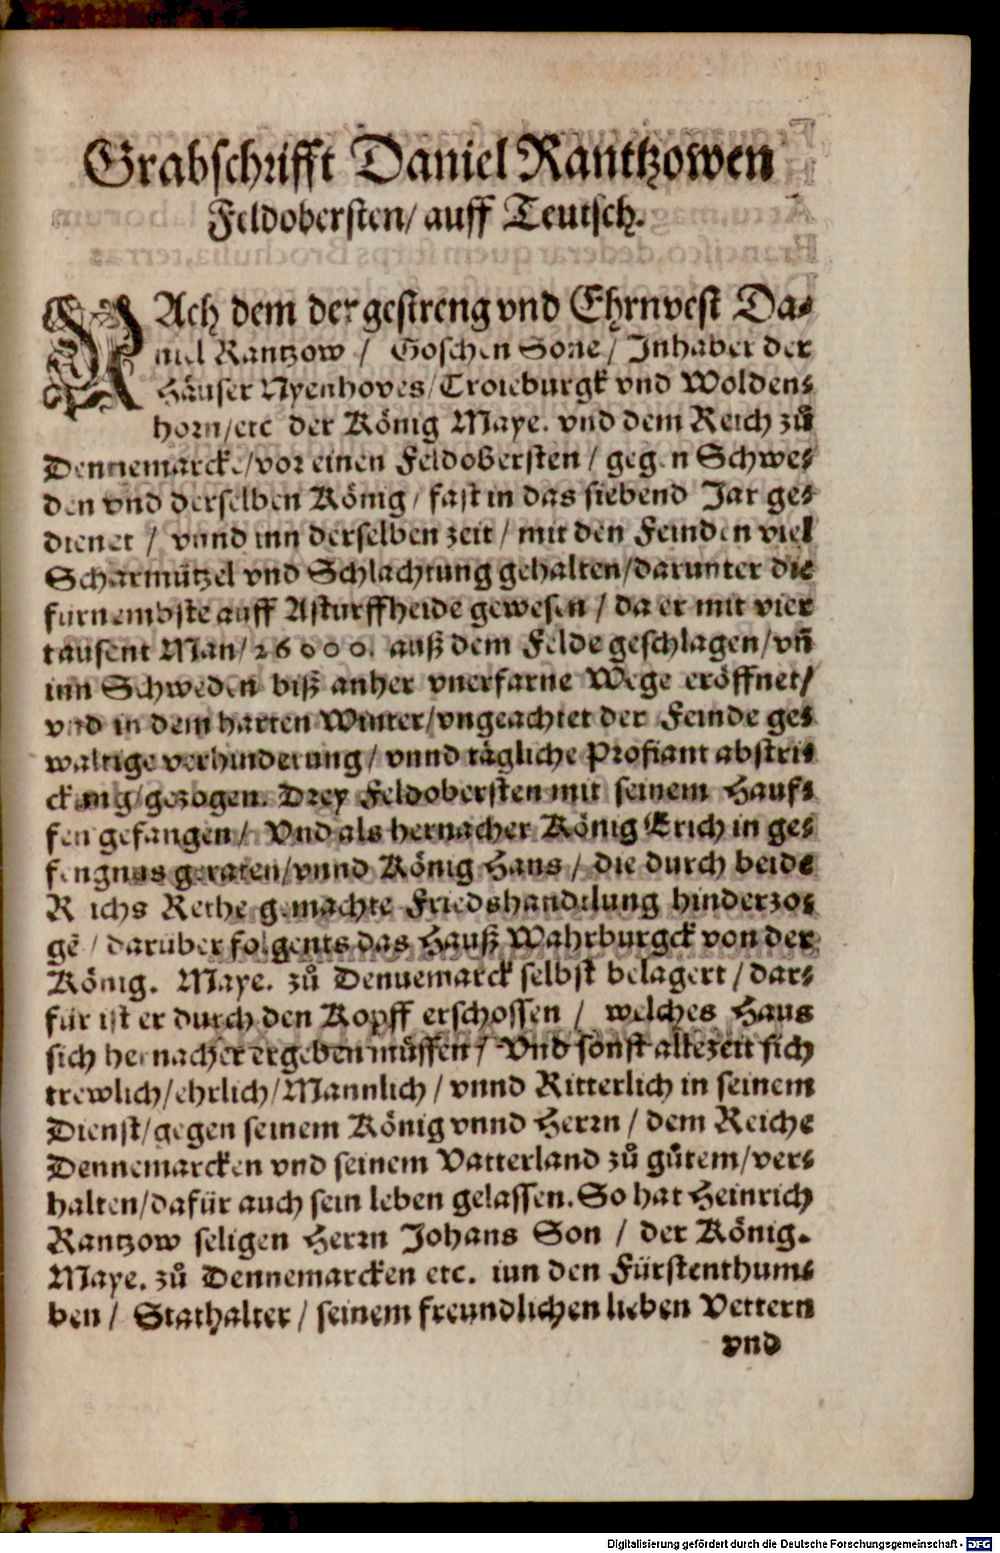 Grabschrifft Daniel Rantzowen
Feldobersten/ auff Teutsch.
NAch dem der gestreng vnd Ehrnvest Da-
niel Rantzow / Goschen Sone / Inhaber der
Häuser Nyenhoves/Troieburgk vnd Wolden-
horn/etc der König Maye. vnd dem Reich zů
Dennemarcke/vor einen Feldobersten / gegen Schwe-
den vnd derselben König / fast in das siebend Jar ge-
dienet / vnnd inn derselben zeit / mit den Feinden viel
Scharmützel vnd Schlachtung gehalten/darunter die
fürnembste auff Asturffheide gewesen / da er mit vier
tausent Man/ 26000. auß dem Felde geschlagen/vn̄
inn Schweden biß anher vnerfarne Wege eröffnet/
vnd in dem harten Winter/vngeachtet der Feinde ge-
waltige verhinderung / vnnd tägliche Profiant abstri-
ckung/gezogen. Drey Feldobersten mit seinem Hauf-
fen gefangen / Vnd als hernacher König Erich in ge-
fengnus geraten/vnnd König Hans / die durch beide
Reichs Rethe gemachte Friedshandelung hinderzo-
gē / darüber folgents das Hauß Wahrburgck von der
König. Maye. zů Dennemarck selbst belagert / dar-
für ist er durch den Kopff erschossen / welches Haus
sich hernacher ergeben müssen / Vnd sonst allezeit sich
trewlich/ehrlich/Mannlich / vnnd Ritterlich in seinem
Dienst/gegen seinem König vnnd Herrn / dem Reiche
Dennemarcken vnd seinem Vatterland zů gůtem/ver-
halten/dafür auch sein leben gelassen. So hat Heinrich
Rantzow seligen Herrn Johans Son / der König.
Maye. zů Dennemarcken etc. inn den Fürstenthum-
ben / Stathalter / seinem freundlichen lieben Vettern
vnd
Digitalisierung gefördert durch die Deutsche Forschungsgemeinschaft - DFG